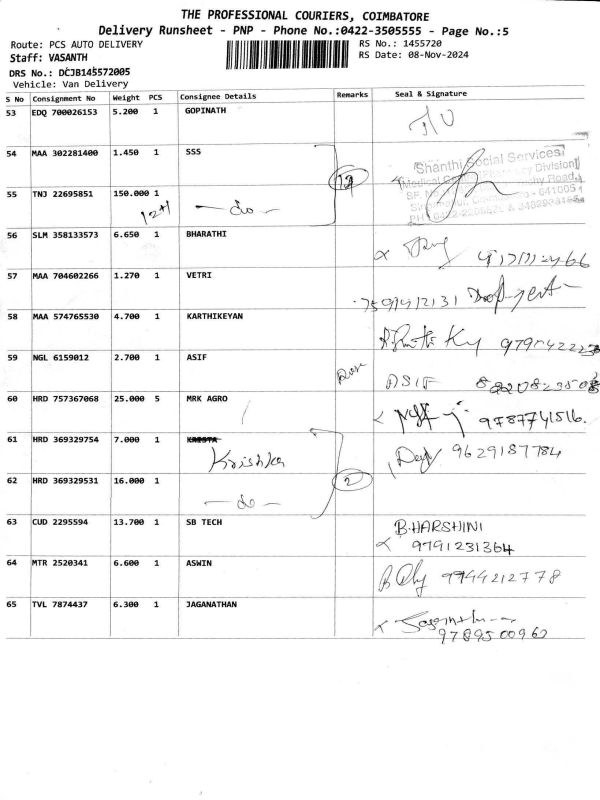 THE PROFESSIONAL COURIERS, COIMBATORE
Delivery Runsheet - PNP - Phone No.:0422-3505555 - Page No.:5
Route: PCS AUTO DELIVERY
RS No.: 1455720
Staff: VASANTH
RS Date: 08-Nov-2024
DRS No.: DCJB145572005
Vehicle: Van Delivery
S No Consignment No Weight PCS Consignee Details Remarks Seal & Signature
53 EDQ 700026153 5.200 1 GOPINATH
54 MAA 302281400 1.450 1 SSS
Shanthi Social Services
55 TNJ 22695851 150.000 1
12+1
56 SLM 358133573 6.650 1 BHARATHI
57 MAA 704602266 1.270 1 VETRI
58 MAA 574765530 4.700 1 KARTHIKEYAN
59 NGL 6159012 2.700 1 ASIF ASIF
60 HRD 757367068 25.000 5 MRK AGRO 9787741516.
61 HRD 369329754 7.000 1 KRISTA
Krishka 9629187784
62 HRD 369329531 16.000 1 2
63 CUD 2295594 13.700 1 SB TECH B.HARSHINI
9791231364
64 MTR 2520341 6.600 1 ASWIN 9944212778
65 TVL 7874437 6.300 1 JAGANATHAN
9789500960